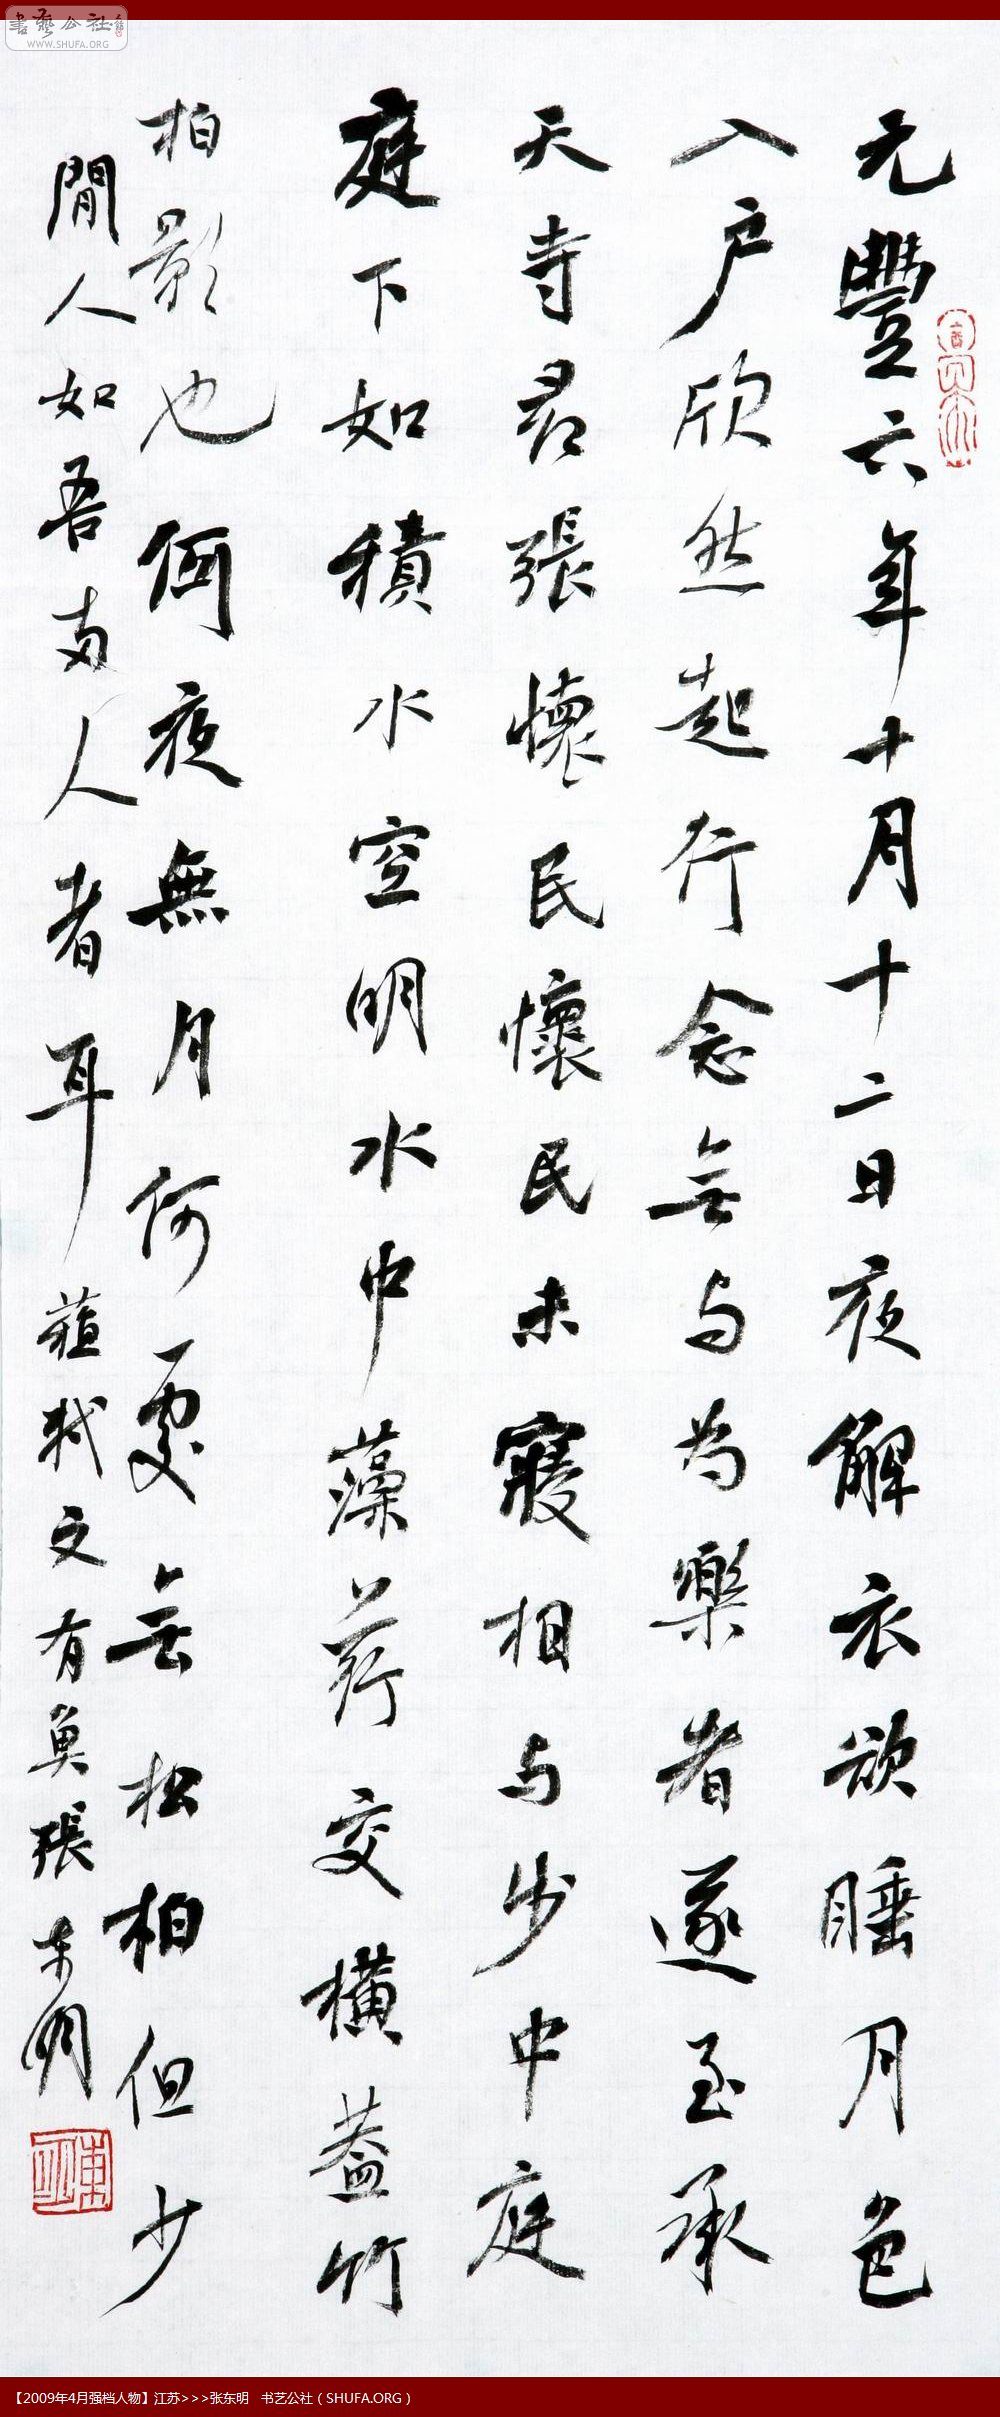 書藝公社
WWW.SHUFA.ORG
元豐六年十月十二日夜解衣欲睡月色
入户欣然起行念無与为樂者遂至承
天寺尋張懷民懷民未寢相与步中庭
庭下如積水空明水中藻荇交橫蓋竹
柏影也何夜無月何處無松柏但少
閒人如吾两人者耳 蘇軾文有張东明
東明
【2009年4月强档人物】江苏>>>张东明 书艺公社（SHUFA.ORG）